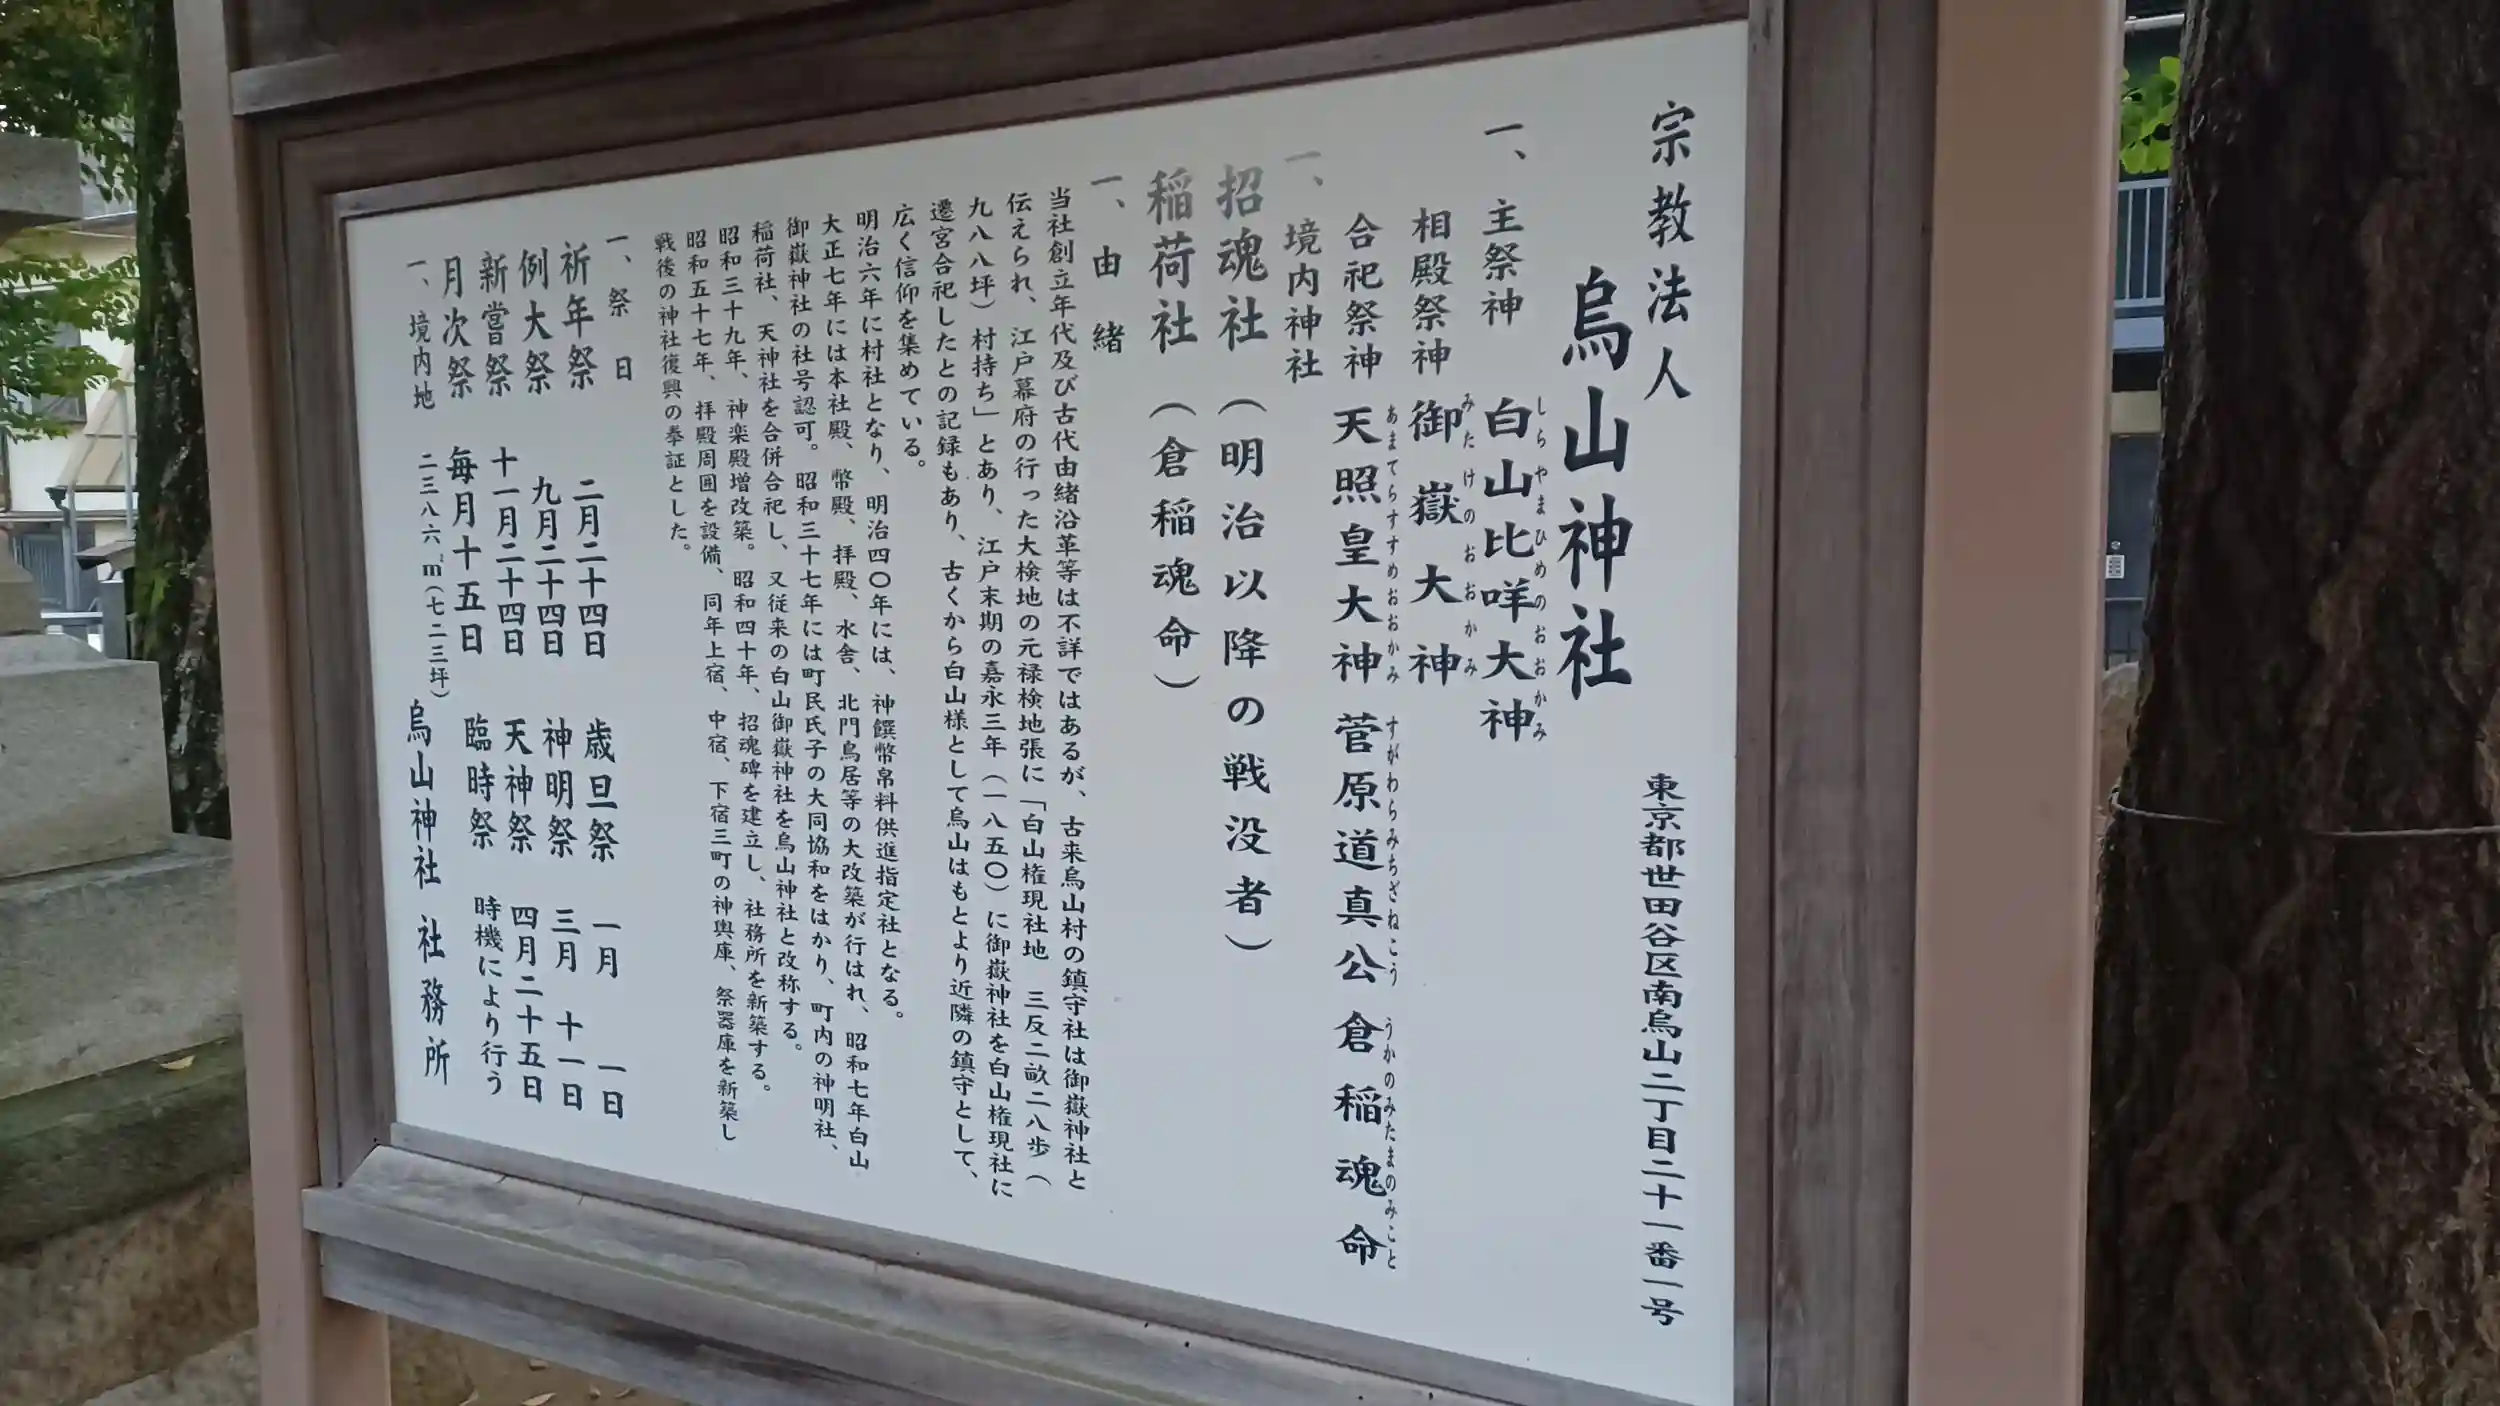 宗教法人
烏山神社
東京都世田谷区南烏山二丁目二十一番一号
一、主祭神 白山比咩大神
しらやまひめのおおかみ
相殿祭神 御嶽大神
みたけのおおかみ
合祀祭神 天照皇大神 菅原道真公 倉稲魂命
あまてらすすめおおかみ すがわらみちざねこう うかのみたまのみこと
一、境内神社
招魂社(明治以降の戦没者)
稲荷社(倉稲魂命)
一、由緒
当社創立年代及び古代由緒沿革等は不詳ではあるが、古来烏山村の鎮守社は御嶽神社と
伝えられ、江戸幕府の行った大検地の元禄検地張に「白山権現社地 三反二畝二八歩(
九八八坪)村持ち」とあり、江戸末期の嘉永三年(一八五〇)に御嶽神社を白山権現社に
遷宮合祀したとの記録もあり、古くから白山様として烏山はもとより近隣の鎮守として、
広く信仰を集めている。
明治六年に村社となり、明治四〇年には、神饌幣帛料供進指定社となる。
大正七年には本社殿、幣殿、拝殿、水舎、北門鳥居等の大改築が行はれ、昭和七年白山
御嶽神社の社号認可。昭和三十七年には町民氏子の大同協和をはかり、町内の神明社、
稲荷社、天神社を合併合祀し、又従来の白山御嶽神社を烏山神社と改称する。
昭和三十九年、神楽殿増改築。昭和四十年、招魂碑を建立し、社務所を新築する。
昭和五十七年、拝殿周囲を設備、同年上宿、中宿、下宿三町の神輿庫、祭器庫を新築し
戦後の神社復興の奉証とした。
一、祭日
祈年祭 二月二十四日 歳旦祭 一月 一日
例大祭 九月二十四日 神明祭 三月 十一日
新嘗祭 十一月二十四日 天神祭 四月二十五日
月次祭 毎月十五日 臨時祭 時機により行う
一、境内地 二三八六㎡(七二三坪)
烏山神社 社務所